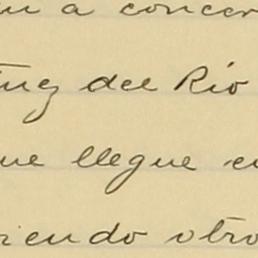 n a concer
ng del Río
ue llegue e
iendo otro